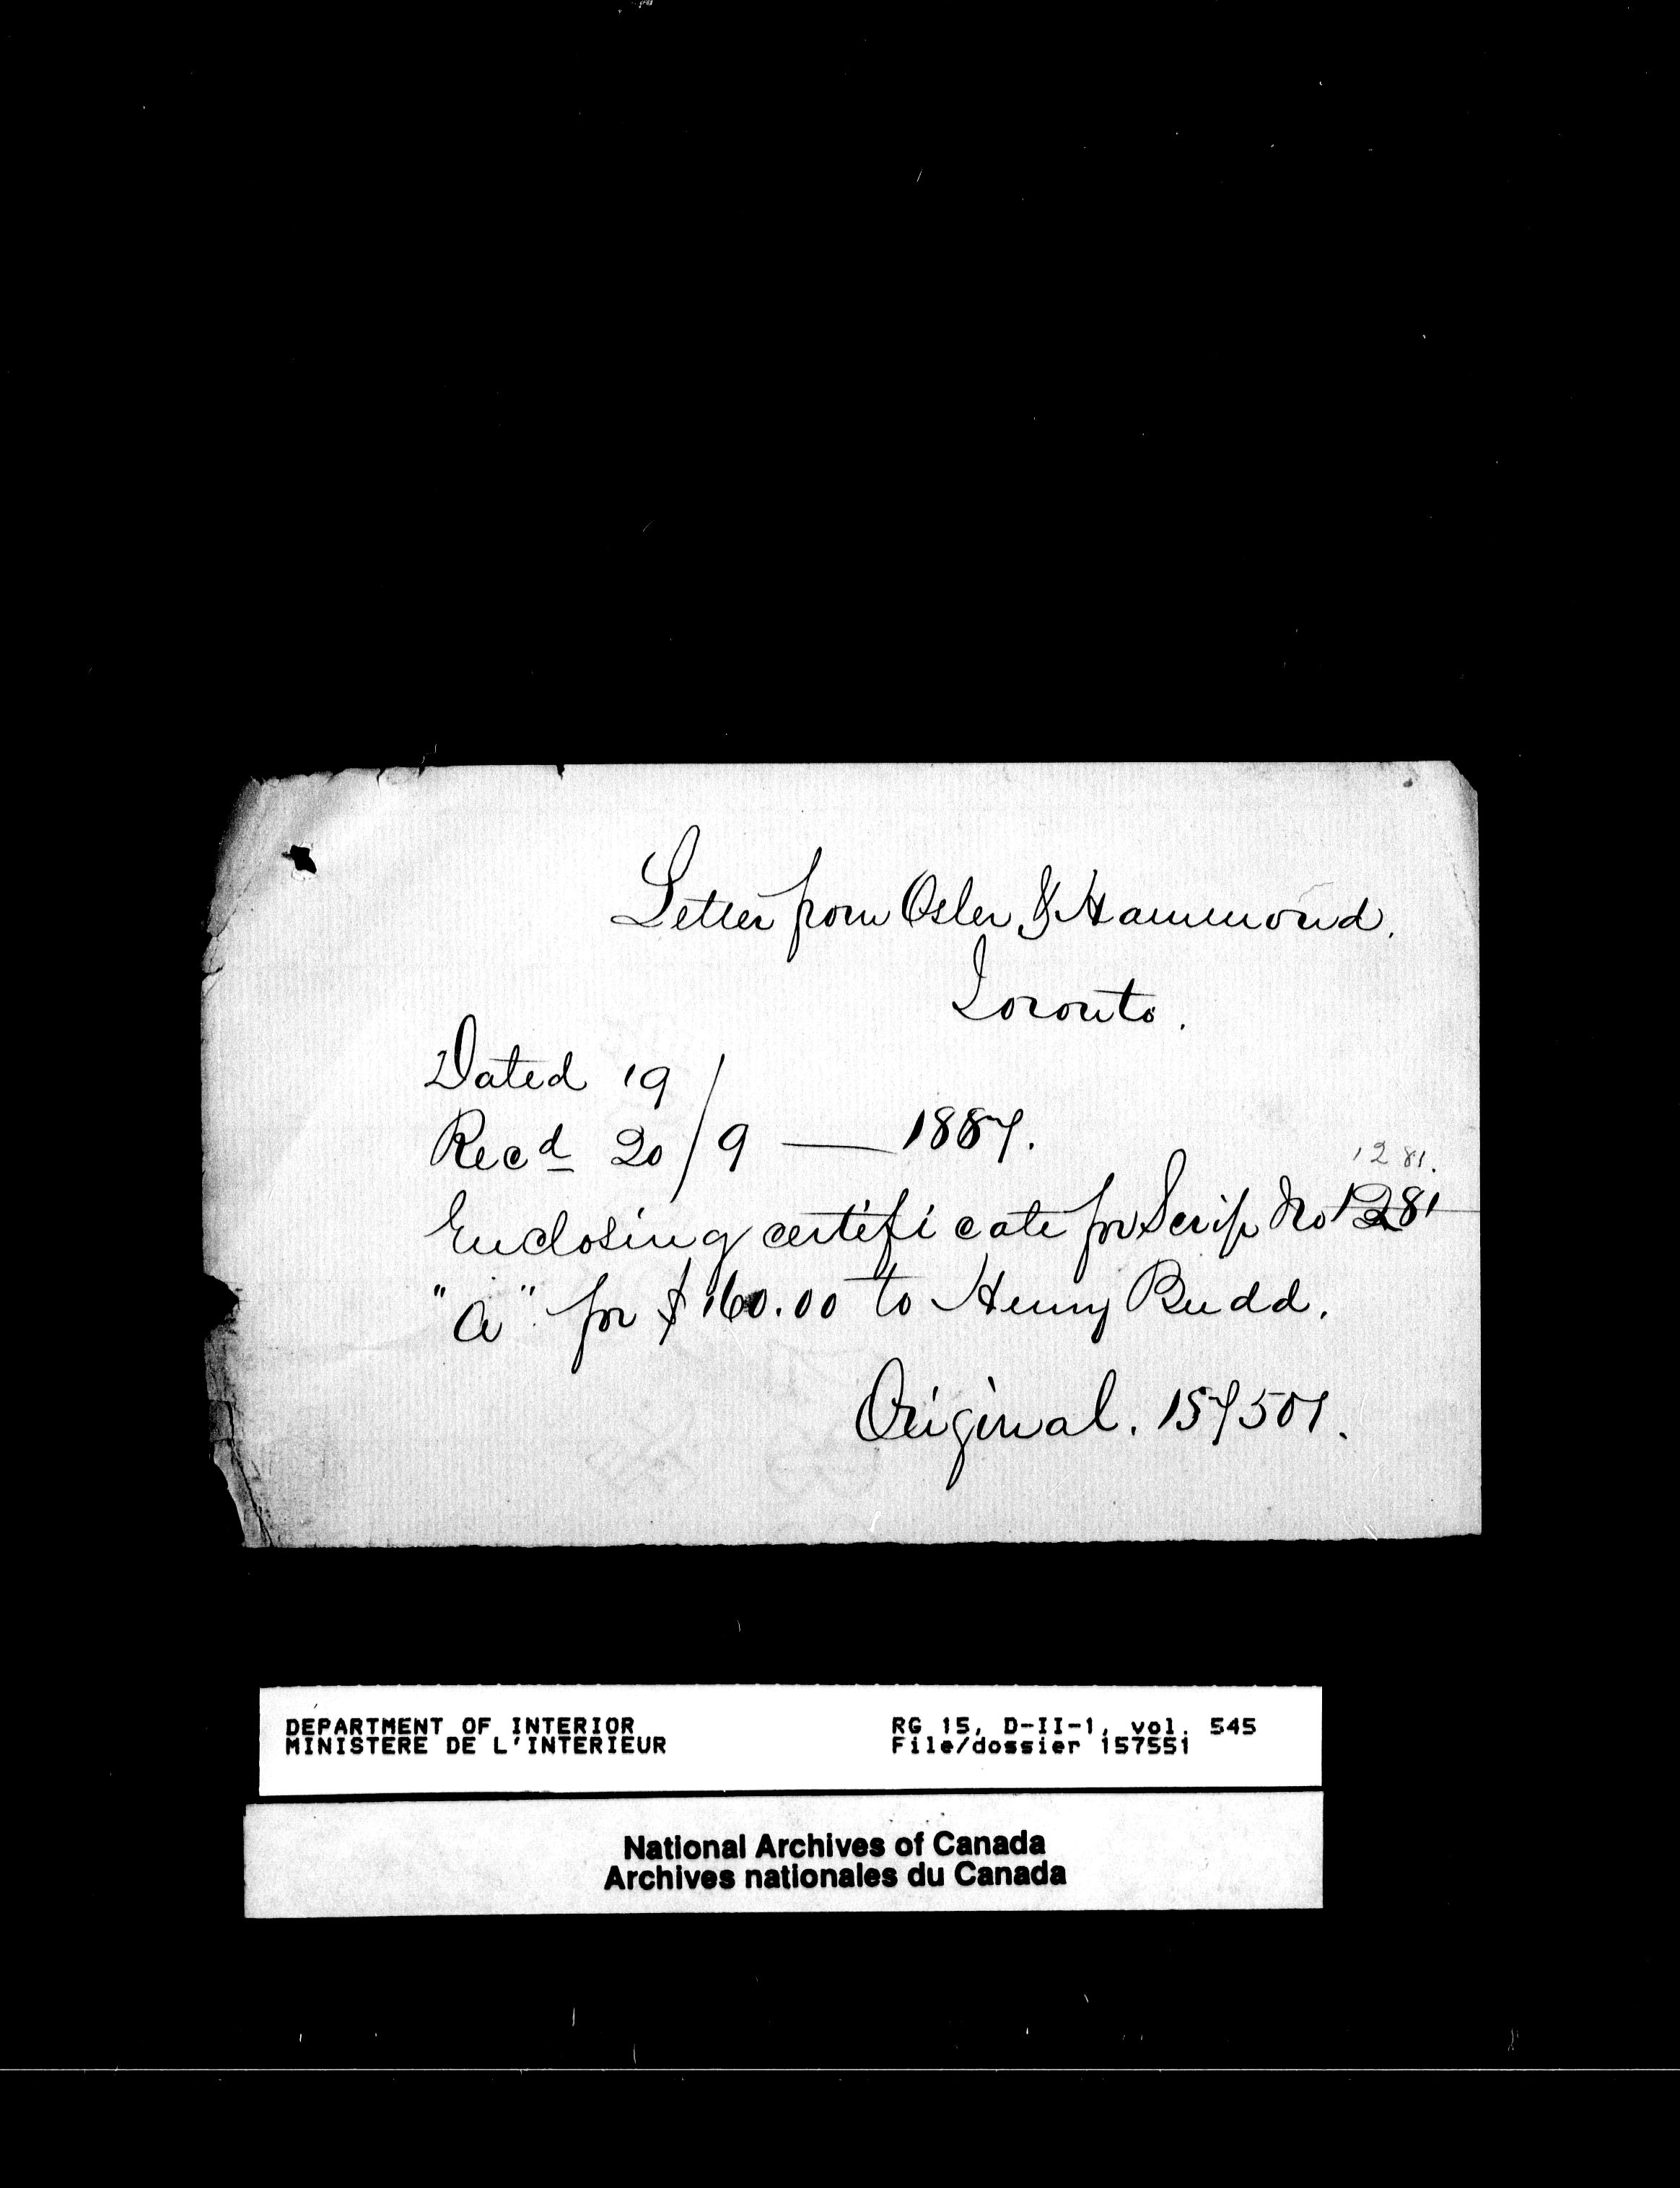 Letter from Osler & Hammond.
Toronto.
Dated 19/
Recd 20/9 — 1887.
1281.
Enclosing certificate for Scrip No 1281
"A" for $160.00 to Henry Budd.
Original. 157501.
DEPARTMENT OF INTERIOR
MINISTERE DE L'INTERIEUR
RG 15, D-II-1, vol. 545
File/dossier 157551
National Archives of Canada
Archives nationales du Canada